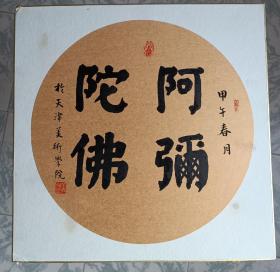 甲午春月
阿彌
陀佛
於天津美術學院